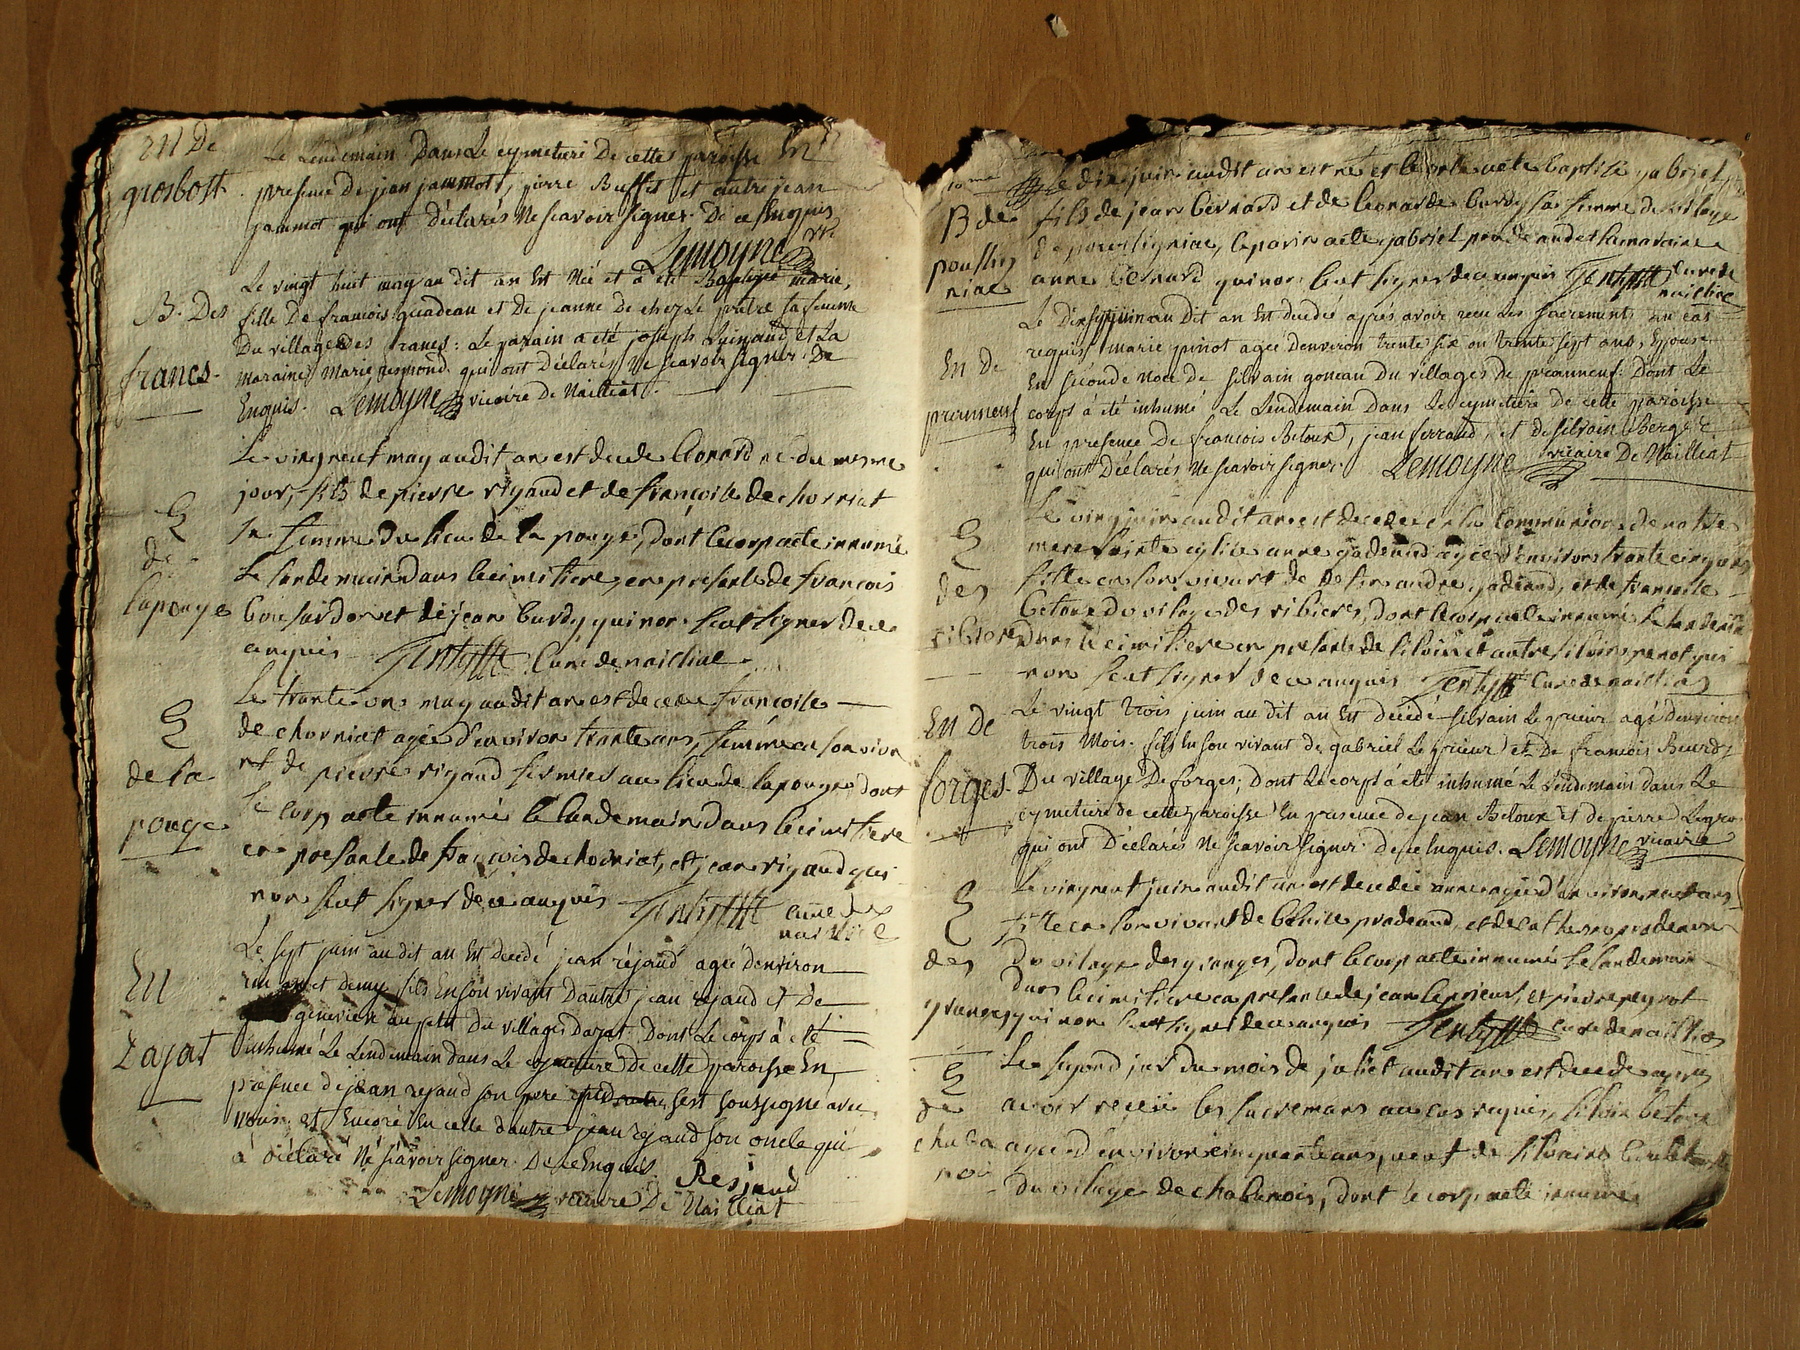 En De
grosbost.
Le Lendemain Dans Le cymetiere De cette paroisse En
presence de jean jammot, pierre Buffet et autre jean
jammot qui ont déclarés Ne scavoir signer. De ce Enquis
Lemoyne
B. Des
francs.
Le vingt huit may au dit an Est Née et à été Baptisée marie,
fille De francois quadeau et De jeanne de chez Le prètre sa femme
Du village Des francs: Le parain a été joseph et La
maraine Marie qui ont Déclarés Ne scavoir signer. De
Enquis. Lemoyne vicaire De Nailliat.
E
de
lapouge
Le vingneuf may audit an est decede Leonard ne du mesme
jour, fils de pierre rigaud et de françoise de chorniat
sa femme du lieu de la pouge, dont le corp acte innumé
Le landemain dans le cimitiere, en presante de françois
et de jean burdy qui non seut signer de ce
anquis Cure de nailliat
E
de la
pouge
Le trante un may audit an est decedee françoise
de chorniat agée d'environ trante ans, femme en son vivan
nt de pierre rigaud fermier au lieu de lapouge, dont
le corp acte innumé le landemain dans le cimitiere
en presante de françois de chorniat, et jean rigaud qui
non seut signer de ce anquis cure de
naillia
En
Zajat
Le sept juin au dit an Est decedé jean réjaud agée d'environ
un an et demy, fils En son vivant D'autre jean rejaud et De
genevieve du petit Du village Dazat. Dont Le corps à été
inhumé Le Lendemain dans Le cymetiere De cette paroisse En
presence de jean rejaud son pere sest soussigné avec
Nous; et Encore En celle d'autre jean rejaud son oncle qui
à déclaré Ne scavoir signer. De ce Enquis Rejaud
Lemoyne vicaire De Nailliat
B de
poussig
niac
Le dix juin audit an est ne et le a ete baptise gabriel
fils de jean bernard et de leonarde burdy sa femme du vilage
de poussigniac, le parin acte gabriel et la maraine
anne bernard qui non seut signer de ce anquis cure de
naillia
En De
preuneuf
Le Dix juin au Dit an Est decedée après avoir recu Les sacrements en cas
requis marie pinot agée d'environ trente six ou trente sept ans, Epouse
En séconde noce de silvain goneau Du villages de preauneuf. Dont Le
corps à été inhumé Le Lendemain Dans Le cymetiere De cette paroisse
En presence De francois Betoux, jean ferrand, et de silvain Berger
qui ont Déclarés Ne scavoir signer. Lemoyne vicaire De Nailliat
E
des
ribiere
Le vingt juin audit an est decedee en la Communion de nostre
mere sainte eglise anne jadeaud agée d'environ trante cinq ans
fille en son vivant de defun andre jadeaud, et de francoise
betoux du vilage des ribieres, dont le corp acte innumé le landemain
dans le cimitiere en presante de silvain et autre silvain penot qui
non seut signer de ce anquis Cure de naillia
En De
forges.
Le vingt trois juin au dit an Est décedé silvain Le prieur agé d'environ
trois mois. fils En son vivant de gabriel Le prieur et De francois Beurdy
Du village De forges; Dont Le corps à été inhumé Le Lendemain dans Le
cymetiere de cette paroisse En presence de jean Betoux et de pierre
qui ont Déclarés Ne scavoir signer. De ce Enquis. Lemoyne vicaire
E
des
granges
Le vingneuf juin audit an est decedée anne agée d'environ neuf ans
fille en son vivant de pradeaud, et de catherine pradeaud
Du vilage des granges, dont le corp acte innumé le landemain
Dans le cimitiere en presance de jean leprieur, et pierre peyrot
qui non seut signer de ce anquis cure de naillia
E
de
chaba
noi
Le segond jur du mois de juliet audit an est decede apres
avoir receü les sacremans au cas requis, silvin betoux
agee d'environ cinquante ans, veuf de silvaine
du vilage de chabanois, dont le corp acte innumé